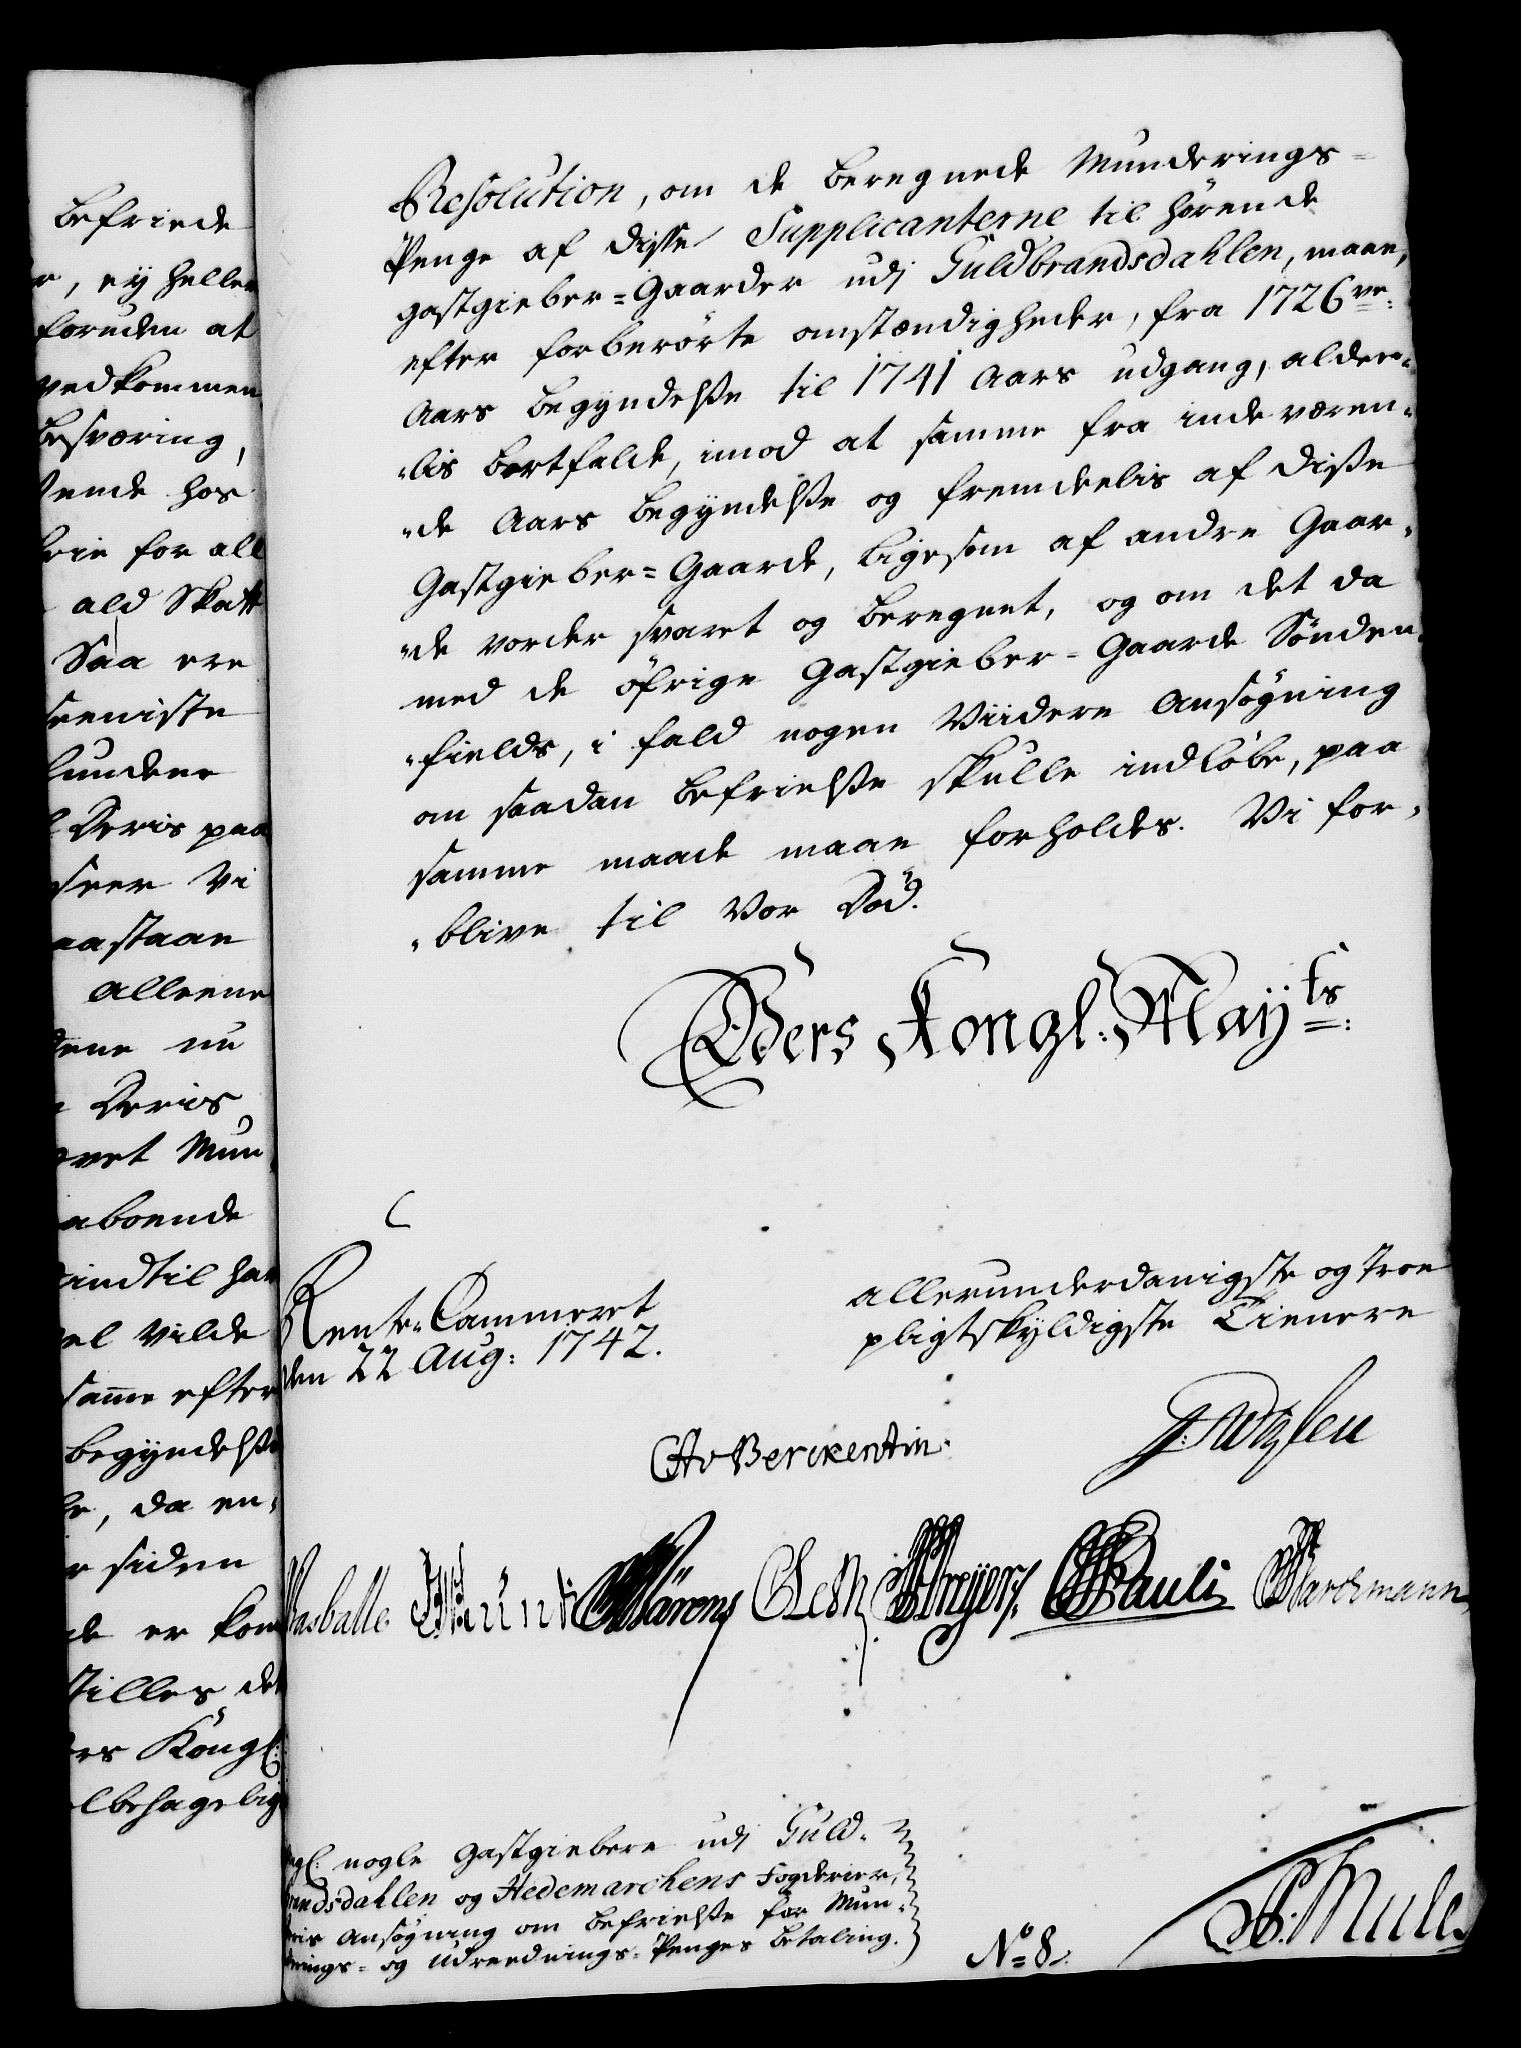 befriede
r, ey heller
foruden at
vedkommen
besværing,
ende hos
for all
ald Skatt
Saa ere
seeniste
paa
seer Vi
aastaae
alleene
nu
Deris
vet Mun
aboende
indtil har
el vilde
samme efter
begyndelse
e, da en-
r siden
de er kom
stilles det
ers Kongl:
lbehagelig
Resolution, om de beregnede Munderings-
Penge af disse Supplicanterne til hørende
gastgieber-Gaarder udj Guldbrandsdahlen, maae,
efter forberørte omstændigheder, fra 1726 ve:
Aars begyndelse til 1741 Aars udgang, aldee-
lis bortfalde, imod at samme fra indeværen-
de Aars begyndelse og fremdeelis af disse
Gastgieber-Gaarde, ligesom af andre Gaar-
de vorder svaret og beregnet, og om det da
med de øfrige Gastgieber-Gaarde Sønden-
fields, i fald nogen Viidere Ansøgning
om saadan befrielse skulle indløbe, paa
samme maade maae forholdes. Vi for-
blive til Vor Død.
Eders Kongl: Mayts:
Rente-Cammeret
den 22 Aug: 1742.
allerunderdanigste og troe
pligtskyldigste Tienere
Berckentin
Pauli
ngl: nogle Gastgiebere udj Guld-
brandsdahlen og Hedemarchens Fogderier,
deris Ansøgning om befrielse for Mun-
derings- og Udreednings-Penges betaling.
No 8.
Mule